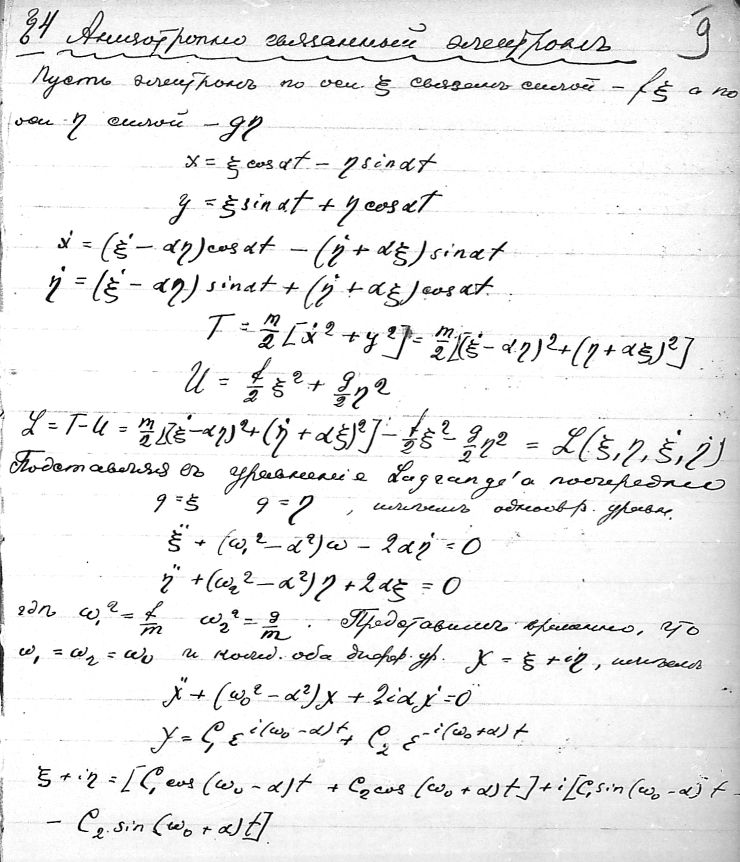 §4 Анизотропно связанный электронъ 9
Пусть электронъ по оси ξ связанъ силой – fξ а по
оси η силой – gη
x = ξ cos αt – η sin αt
y = ξ sin αt + η cos αt
ẋ = (ξ̇ – αη) cos αt – (η̇ + αξ) sin αt
η̇ = (ξ̇ – αη) sin αt + (η̇ + αξ) cos αt
T = m/2 [ẋ² + y²] = m/2 [(ξ̇ – αη)² + (η + αξ)²]
U = f/2 ξ² + g/2 η²
L = T – U = m/2 [(ξ̇ – αη)² + (η̇ + αξ)²] – f/2 ξ² – g/2 η² = L(ξ, η, ξ̇, η̇)
Подставляя въ уравненіе Lagrange'a поочередно
q = ξ q = η, имѣемъ уравн.
ξ̈ + (ω₁² – α²)ω – 2αη̇ = 0
η̈ + (ω₂² – α²)η + 2αξ = 0
гдѣ ω₁² = f/m ω₂² = g/m. Представимъ временно, что
ω₁ = ω₂ = ω₀ и оба диффер. ур. χ = ξ + iη, имѣемъ
χ̈ + (ω₀² – α²)χ + 2iαχ̇ = 0
χ = C₁ ε^{i(ω₀ – α)t} + C₂ ε^{–i(ω₀ + α)t}
ξ + iη = [C₁ cos (ω₀ – α)t + C₂ cos (ω₀ + α)t] + i[C₁ sin (ω₀ – α)t –
– C₂ sin (ω₀ + α)t]